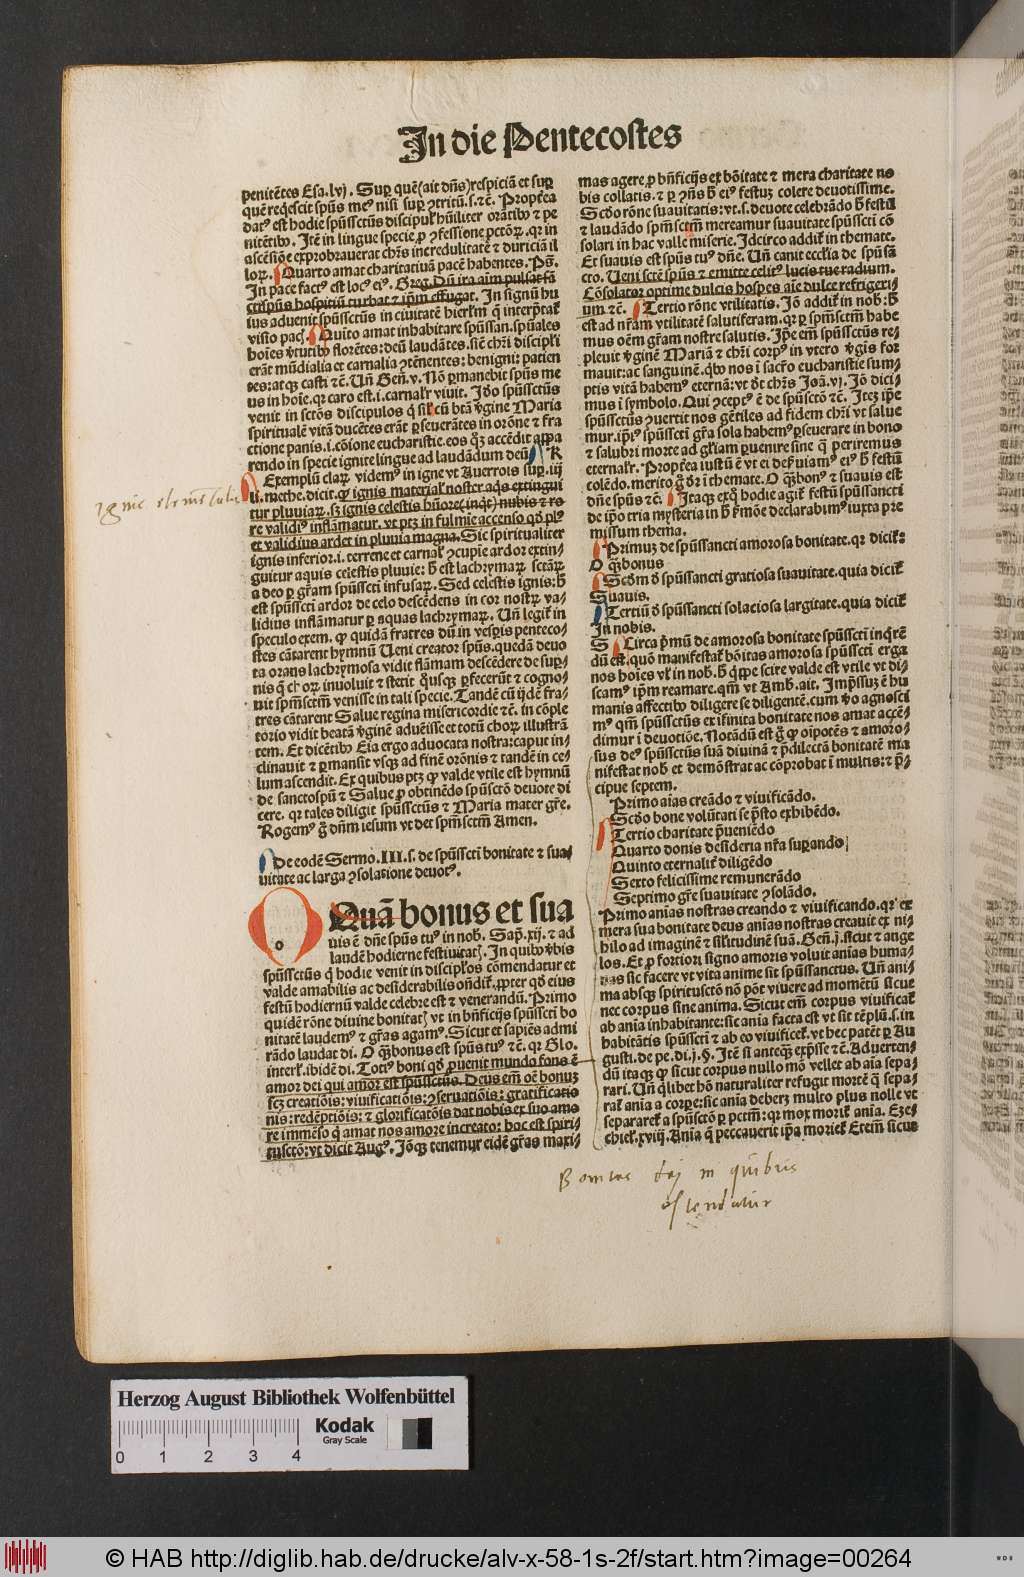 In die Pentecostes
penitẽtes Esa. lvj. Suꝑ quẽ (ait dñs) respiciã et suꝑ
quẽ reqͥescit spũs meꝰ nisi suꝑ ꝯtritũ. s. ⁊c̃. Proptẽa
datꝰ est hodie spũssctũs discipul' hũiliter orãtibꝰ ⁊ pe
nitẽtibꝰ. Itẽ in lingue specie, ꝓ ꝯfessione pctõꝝ. qꝛ in
ascẽsiõe exprobrauerat chr̃s incredulitatẽ ⁊ duriciã il
loꝝ. Quarto amat charitatiuã pacẽ habentes. Ps̃.
In pace factꝰ est locꝰ eiꝰ. Greg. Dũ ira aĩm pulsat sã
ctꝰ spũs hospitiũ turbat ⁊ ip̃m effugat. In signũ hu
ius aduenit spũssctũs in ciuitatẽ hierlm̃ q̃ interp̃tat'
visio pac. Quĩto amat inhabitare spũssan. spũales
hoĩes v̓tutibꝰ florẽtes: deũ laudãtes. siẽ chr̃i discipl'i
erãt mũdialia et carnalia ꝯtẽnentes: benigni: patien
tes: atqꝫ casti ⁊c̃. Vñ Geñ. v. Nõ ꝑmanebit spũs me
us in hoĩe. qꝛ caro est. i. carnal'r viuit. Iõo spũssctũs
venit in sctõs discipulos q̃ sil' cũ btã v̓gine Maria
spiritualẽ vitã ducẽtes erãt ꝑseuerãtes in or̃one ⁊ fra
ctione panis. i. cõione eucharistie. eos qͫꝫ accẽdit appa
rendo in specie ignite lingue ad laudãdum deũ. R
Exemplũ claꝝ videmꝰ in igne vt Auerrois suꝑ. iij
li. methe. dicit. ꝙ ignis material' noster aq̃s extingui
tur pluuiaꝝ. sꝫ ignis celestis hũore (inq̃t) nubis ⁊ ro
re validiꝰ inflãmatur. vt ptꝫ in fulmĩe accenso qd̃ plꝰ
et validius ardet in pluuia magna. Sic spiritualiter
ignis inferior. i. terrene et carnal' ꝯcupie ardor extin-
guitur aquis celestis pluuie: h̃ est lachrymaꝝ sctãꝝ
a deo ꝑ gr̃am spũssctĩ infusaꝝ. Sed celestis ignis: h̃
est spũssctĩ ardor de celo descẽdens in cor nostꝝ va-
lidius inflãmatur ꝑ aquas lachrymaꝝ. Vñ legit' in
speculo exem. ꝙ quidã fratres dũ in vesꝑis penteco-
stes cãtarent hymnũ Veni creator spũs. quedã deuo
ta orans lachrymosa vidit flãmam descẽdere de suꝑ-
nis q̃ choꝝ inuoluit ⁊ stetit qͦusqꝫ ꝑfecerũt ⁊ cogno-
uit spm̃sctm̃ venisse in tali specie. Tandẽ cũ ijdẽ fra-
tres cãtarent Salue regina misericordie ⁊c̃. in cõple
torio vidit beatã v̓ginẽ aduẽisse et totũ choꝝ illustrã
tem. Et dicẽtibꝰ Eia ergo aduocata nostra: caput in-
clinauit ⁊ ꝑmansit vsqꝫ ad finẽ orõnis ⁊ tandẽ in ce-
lum ascendit. Ex quibus ptꝫ ꝙ valde vtile est hymnũ
de sanctospũ ⁊ Salue ꝓ obtinẽdo spũsctõ deuote di
cere. qꝛ tales diligit spũssctũs ⁊ Maria mater gr̃e.
Rogemꝰ g̊ dñm iesum vt det spm̃sctm̃ Amen.
De eodẽ Sermo. III. s. de spũssctĩ bonitate ⁊ sua
uitate ac larga ꝯsolatione deuotꝰ.
O
Quã bonus et sua
uis ẽ dñe spũs tuꝰ in nob. Sap. xij. ⁊ ad
laudẽ hodierne festiuitat. In quibꝰ v̓bis
spũssctũs q̃ hodie venit in discipl'os cõmendatur et
valde amabilis ac desiderabilis oñdit', ꝓpter qd̃ eius
festũ hodiernũ valde celebre est ⁊ venerandũ. Primo
quidẽ rõne diuine bonitat vt in bñficijs spũssctĩ bo
nitatẽ laudemꝰ ⁊ gr̃as agamꝰ. Sicut et sapiẽs admi
rãdo laudat di. O qͫꝫ bonus est spũs tuꝰ ⁊c̃. qꝛ Glo.
interl'. ibidẽ di. Totiꝰ boni qd̃ ꝓuenit mundo fons ẽ
amor dei qui amor est spũssctũs. Deus em̃ oẽ bonuꝫ
scꝫ creatiõis: viuificatiõis: ꝯseruatiõis: gratificatio
nis: redẽptiõis: ⁊ glorificatiõis dat nobis ex suo amo
re immẽso q̃ amat nos amore increato: hac est spiri-
tusctõ: vt dicit Augꝰ. Iõqꝫ tenemur eidẽ gr̃as maxi-
mas agere, ꝓ bñficijs ex bõitate ⁊ mera charitate no
bis collatis. ⁊ ꝑ ꝯñs h̃ eiꝰ festuꝫ colere deuotissime.
Scd̃o rõne suauitatis: vt. s. deuote celebrãdo h̃ festũ
⁊ laudãdo spm̃sctm̃ mereamur suauitate spũssctĩ cõ
solari in hac valle miserie. Idcirco addit' in themate.
Et suauis est spũs tuꝰ dñe. Vñ canit eccl'ia de spũ sã
cto. Veni sctẽ spũs ⁊ emitte celitꝰ lucis tue radium.
Cõsolator optime dulcis hospes aĩe dulce refrigeri-
um ⁊c̃. Tertio rõne vtilitatis. Iõ addit' in nob: h̃
est ad nr̃am vtilitatẽ salutiferam. qꝛ ꝑ spm̃sctm̃ habe
mus oẽm gr̃am nostre salutis. Ip̃e em̃ spũssctũs re-
pleuit v̓ginẽ Mariã ⁊ chr̃i corpꝰ in vtero v̓gis for
mauit: ac sanguinẽ. qͥbꝰ nos ĩ sacr̃o eucharistie sum-
ptis vitã habemꝰ eternã: vt d̃t chr̃s Joã. vj. Iõ dici-
mus ĩ symbolo. Qui ꝯceptꝰ ẽ de spũsctõ ⁊c̃. Itẽꝫ ip̃e
spũssctũs ꝯuertit nos gẽtiles ad fidem chr̃i vt salue
mur. ip̃iꝰ spũssctĩ gr̃a sola habemꝰ ꝑseuerare in bono
⁊ salubri morte ad gl'iam ꝑuenire sine q̃ periremus
eternal'r. Proptẽa iustũ ẽ vt ei depuiamꝰ eiꝰ h̃ festũ
colẽdo. merito g̊ d̃r ĩ themate. O qͫꝫ bonꝰ ⁊ suauis est
dñe spũs ⁊c̃. Itaqꝫ exqͦ hodie agit' festũ spũssancti
de ip̃o tria mysteria in h̃ s̃mõe declarabimꝰ iuxta pre
missum thema.
Primuꝫ de spũssancti amorosa bonitate. qꝛ dicit':
O qͫꝫ bonus
Scd̃m d̃ spũssancti gratiosa suauitate. quia dicit'
Suauis.
Tertiũ d̃ spũssancti solaciosa largitate. quia dicit'
In nobis.
S Circa p̃mũ de amorosa bonitate spũssctĩ inqͥrẽ
dũ est. quõ manifestat' bõitas amorosa spũssctĩ erga
nos hoĩes vl' in nob. h̃ q̃ppe scire valde est vtile vt di-
scamꝰ ip̃m reamare. qm̃ vt Amb. ait. Impͥssuꝫ ẽ hu
manis affectibꝰ diligere se diligentẽ. cum v̊o agnosci
mꝰ qm̃ spũssctũs ex ifinita bonitate nos amat accẽ-
dimur ĩ deuotiõe. Notãdũ est g̊ ꝙ oĩpotẽs ⁊ amoro-
sus deꝰ spũssctũs suã diuinã ⁊ p̃dilectã bonitatẽ ma
nifestat nob et demõstrat ac cõprobat ĩ multis: ⁊ p̃-
cipue septem.
Primo aĩas creãdo ⁊ viuificãdo.
Scd̃o bone volũtati se p̃sto exhibẽdo.
Tertio charitate p̃ueniẽdo
Quarto donis desideria nr̃a suꝑando
Quinto eternalit' diligẽdo
Sexto felicissime remunerãdo
Septimo gr̃e suauitate ꝯsolãdo.
Primo aĩas nostras creando ⁊ viuificando. qꝛ ex
mera sua bonitate deus aĩas nostras creauit ex ni-
hilo ad imaginẽ ⁊ sil'itudinẽ suã. Geñ. j. sicut ⁊ ange
los. Et ꝓ fortiori signo amoris voluit aĩas huma-
nas sic facere vt vita anime sit spũssanctus. Vñ ani-
ma absqꝫ spiritusctõ nõ põt viuere ad momẽtũ sicut
nec corpus sine anima. Sicut em̃ corpus viuificat'
ab aĩa inhabitante: sic aĩa facta est vt sit tẽplũ. s. in
habitãtis spũssctĩ ⁊ ab eo viuificet'. vt hec patẽt ꝑ Au
gusti. de pe. di. j. §. Itẽ si anteqͫꝫ ex̃psse ⁊c̃. Aduerten-
dũ itaqꝫ ꝙ sicut corpus nullo mõ vellet ab aĩa sepa-
rari. Vñ q̃libet hõ naturaliter refugit mortẽ q̃ sepa-
rat' aĩa a corpe: sic aĩa deberꝫ multo plus nolle vt
separaret' a spũsctõ ꝑ pctm̃: qꝛ mox morit' aĩa. Eze-
chiel'. xviij. Aĩa q̃ peccauerit ip̃a moriet' Etem̃ sicut
Bonitas dei in quibus
ostendatur
Herzog August Bibliothek Wolfenbüttel
Kodak
Gray Scale
0 1 2 3 4
© HAB http://diglib.hab.de/drucke/alv-x-58-1s-2f/start.htm?image=00264